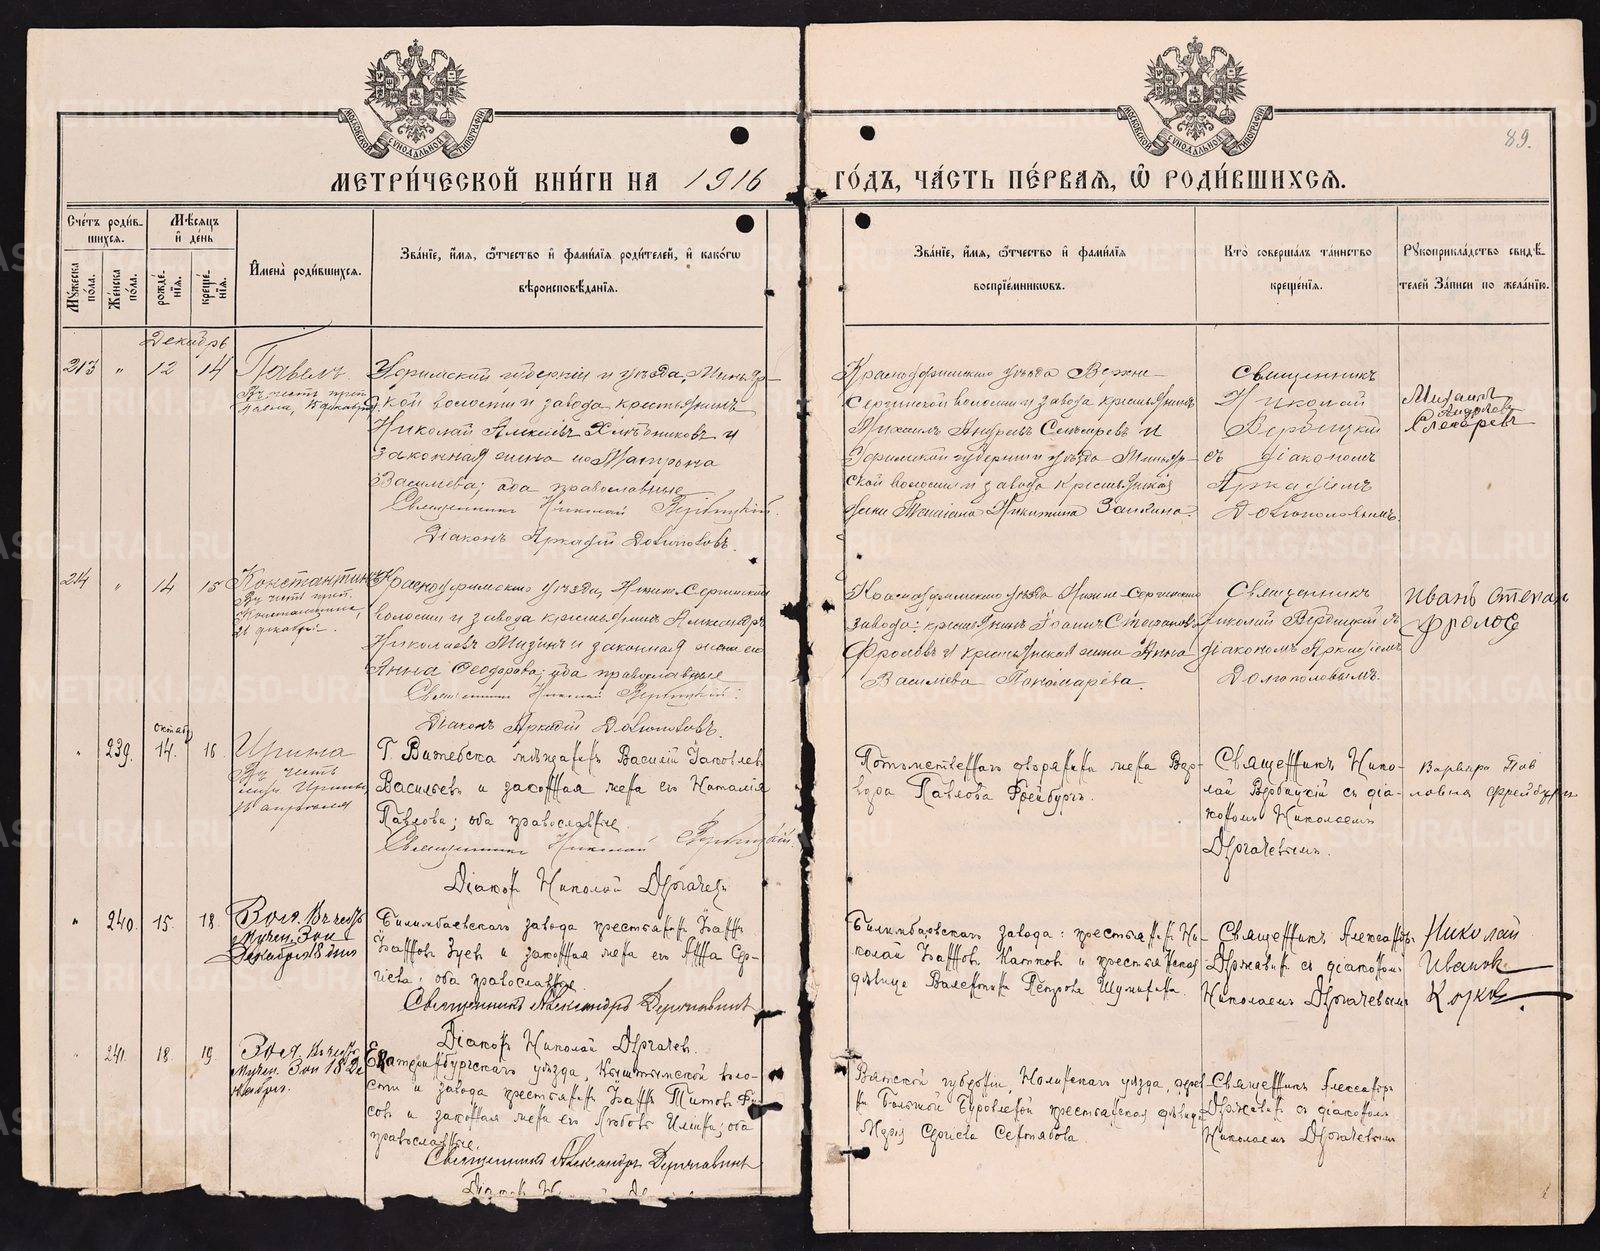 МОСКОВСКОЙ СѴНОДАЛЬНОЙ ТИПОГРАФІИ
МОСКОВСКОЙ СѴНОДАЛЬНОЙ ТИПОГРАФІИ
89.
МЕТРИ́ЧЕСКОЙ КНИ́ГИ НА 1916 ГО́ДЪ, ЧА́СТЬ ПЕ́РВАЯ, Ѡ҆ РОДИ́ВШИХСЯ.
Сче́тъ роди́в-
шихся.
Мꙋ́жеска по́ла.
Же́нска по́ла.
Мѣ́сяцъ и҆ де́нь
рожде́-нїя.
креще́-нїя.
И҆мена̀ роди́вшихся.
Зва́нїе, и҆́мя, ѻ҆́тчество и҆ фами́лїя роди́телей, и҆ како́гѡ
вѣроисповѣ́данїя.
Зва́нїе, и҆́мя, ѻ҆́тчество и҆ фами́лїя
воспрїе́мникѡвъ.
Кто̀ соверша́лъ та́инство
креще́нїя.
Рꙋкоприкла́дство свидѣ́-
телей За́писи по жела́нїю.
Декабрь
213 " 12 14 Павелъ
Въ честь преп.
Павла, 15 декабря
Уфимской губерніи и уѣзда, Миньяр-
ской волости и завода крестьянинъ
Николай Алексѣевъ и
законная жена его Матрона
Васильева; оба православные
Священникъ Николай Вербицкій.
Діаконъ Аркадій Долгополовъ.
Красноуфимскаго уѣзда Верхне-
Сергинской волости и завода крестьянинъ
Михаилъ Андреевъ и
Уфимской губерніи и уѣзда Миньяр-
ской волости и завода крестьянская
Никитина
Священникъ
Николай
Вербицкій
съ діакономъ
Аркадіемъ
Долгополовымъ.
Михаилъ
Андреевъ
214 " 14 15 Константинъ
Въ честь преп.
Константина,
21 декабря.
Красноуфимскаго уѣзда, Нижне-Сергинской
волости и завода крестьянинъ Александръ
Николаевъ Мизинъ и законная жена его
Анна Ѳеодорова; оба православные
Священникъ Николай Вербицкій.
Діаконъ Аркадій Долгополовъ.
Красноуфимскаго уѣзда Нижне-Сергинскаго
завода: крестьянинъ Іоаннъ Стефановъ
Фроловъ и крестьянская жена Анна
Васильева Пономарева.
Священникъ
Николай Вербицкій съ
діакономъ Аркадіемъ
Долгополовымъ.
Иванъ Степан
Фролов
" 239. октяб. 14. 16 Ирина
Въ честь
муч. Ирины,
16 апрѣля
Г. Витебска мѣщанинъ Василій Іаковлев
Васильев и законная жена его Наталія
Павлова; оба православные.
Священникъ Николай Вербицкій.
Діакон Николай Дергачев
Потомственнаго дворянина жена Вар-
вара Павлова Фрейбургъ.
Священникъ Нико-
лай Вербицкій съ діа-
кономъ Николаемъ
Дергачевымъ.
Варвара Пав
ловна Фрейбург
" 240. 15. 18. Зоя. Въ честь
Мучен. Зои
Декабря 18 дня
Билимбаевскаго завода крестьянин Іоанн
Іоаннов Зуев и законная жена его Анна Сер-
гіева; оба православные.
Священникъ Александръ Державинъ
Діакон Николай Дергачев.
Билимбаевскаго завода: крестьянин Ни-
колай Іоаннов Катков и крестьянская
дѣвица Валентина Петрова Шумилина.
Священникъ Александръ
Державин съ діаконом
Николаемъ Дергачевымъ
Николай
Иванов.
241. 18. 19. Зоя. Въ честь
Мучен. Зои 18 Де
Екатеринбургскаго уѣзда, Кыштымской воло-
сти и завода крестьянин Іоанн Титов
и законная жена его Любовь Ильина; оба
православные.
Священникъ Александръ Державинъ
Вятской губерніи, Нолинскаго уѣзда,
крестьянская дѣвица
Сергіева
Священникъ Александръ
Державин съ діакономъ
Николаемъ Дергачевымъ
METRIKI.GASO-URAL.RU